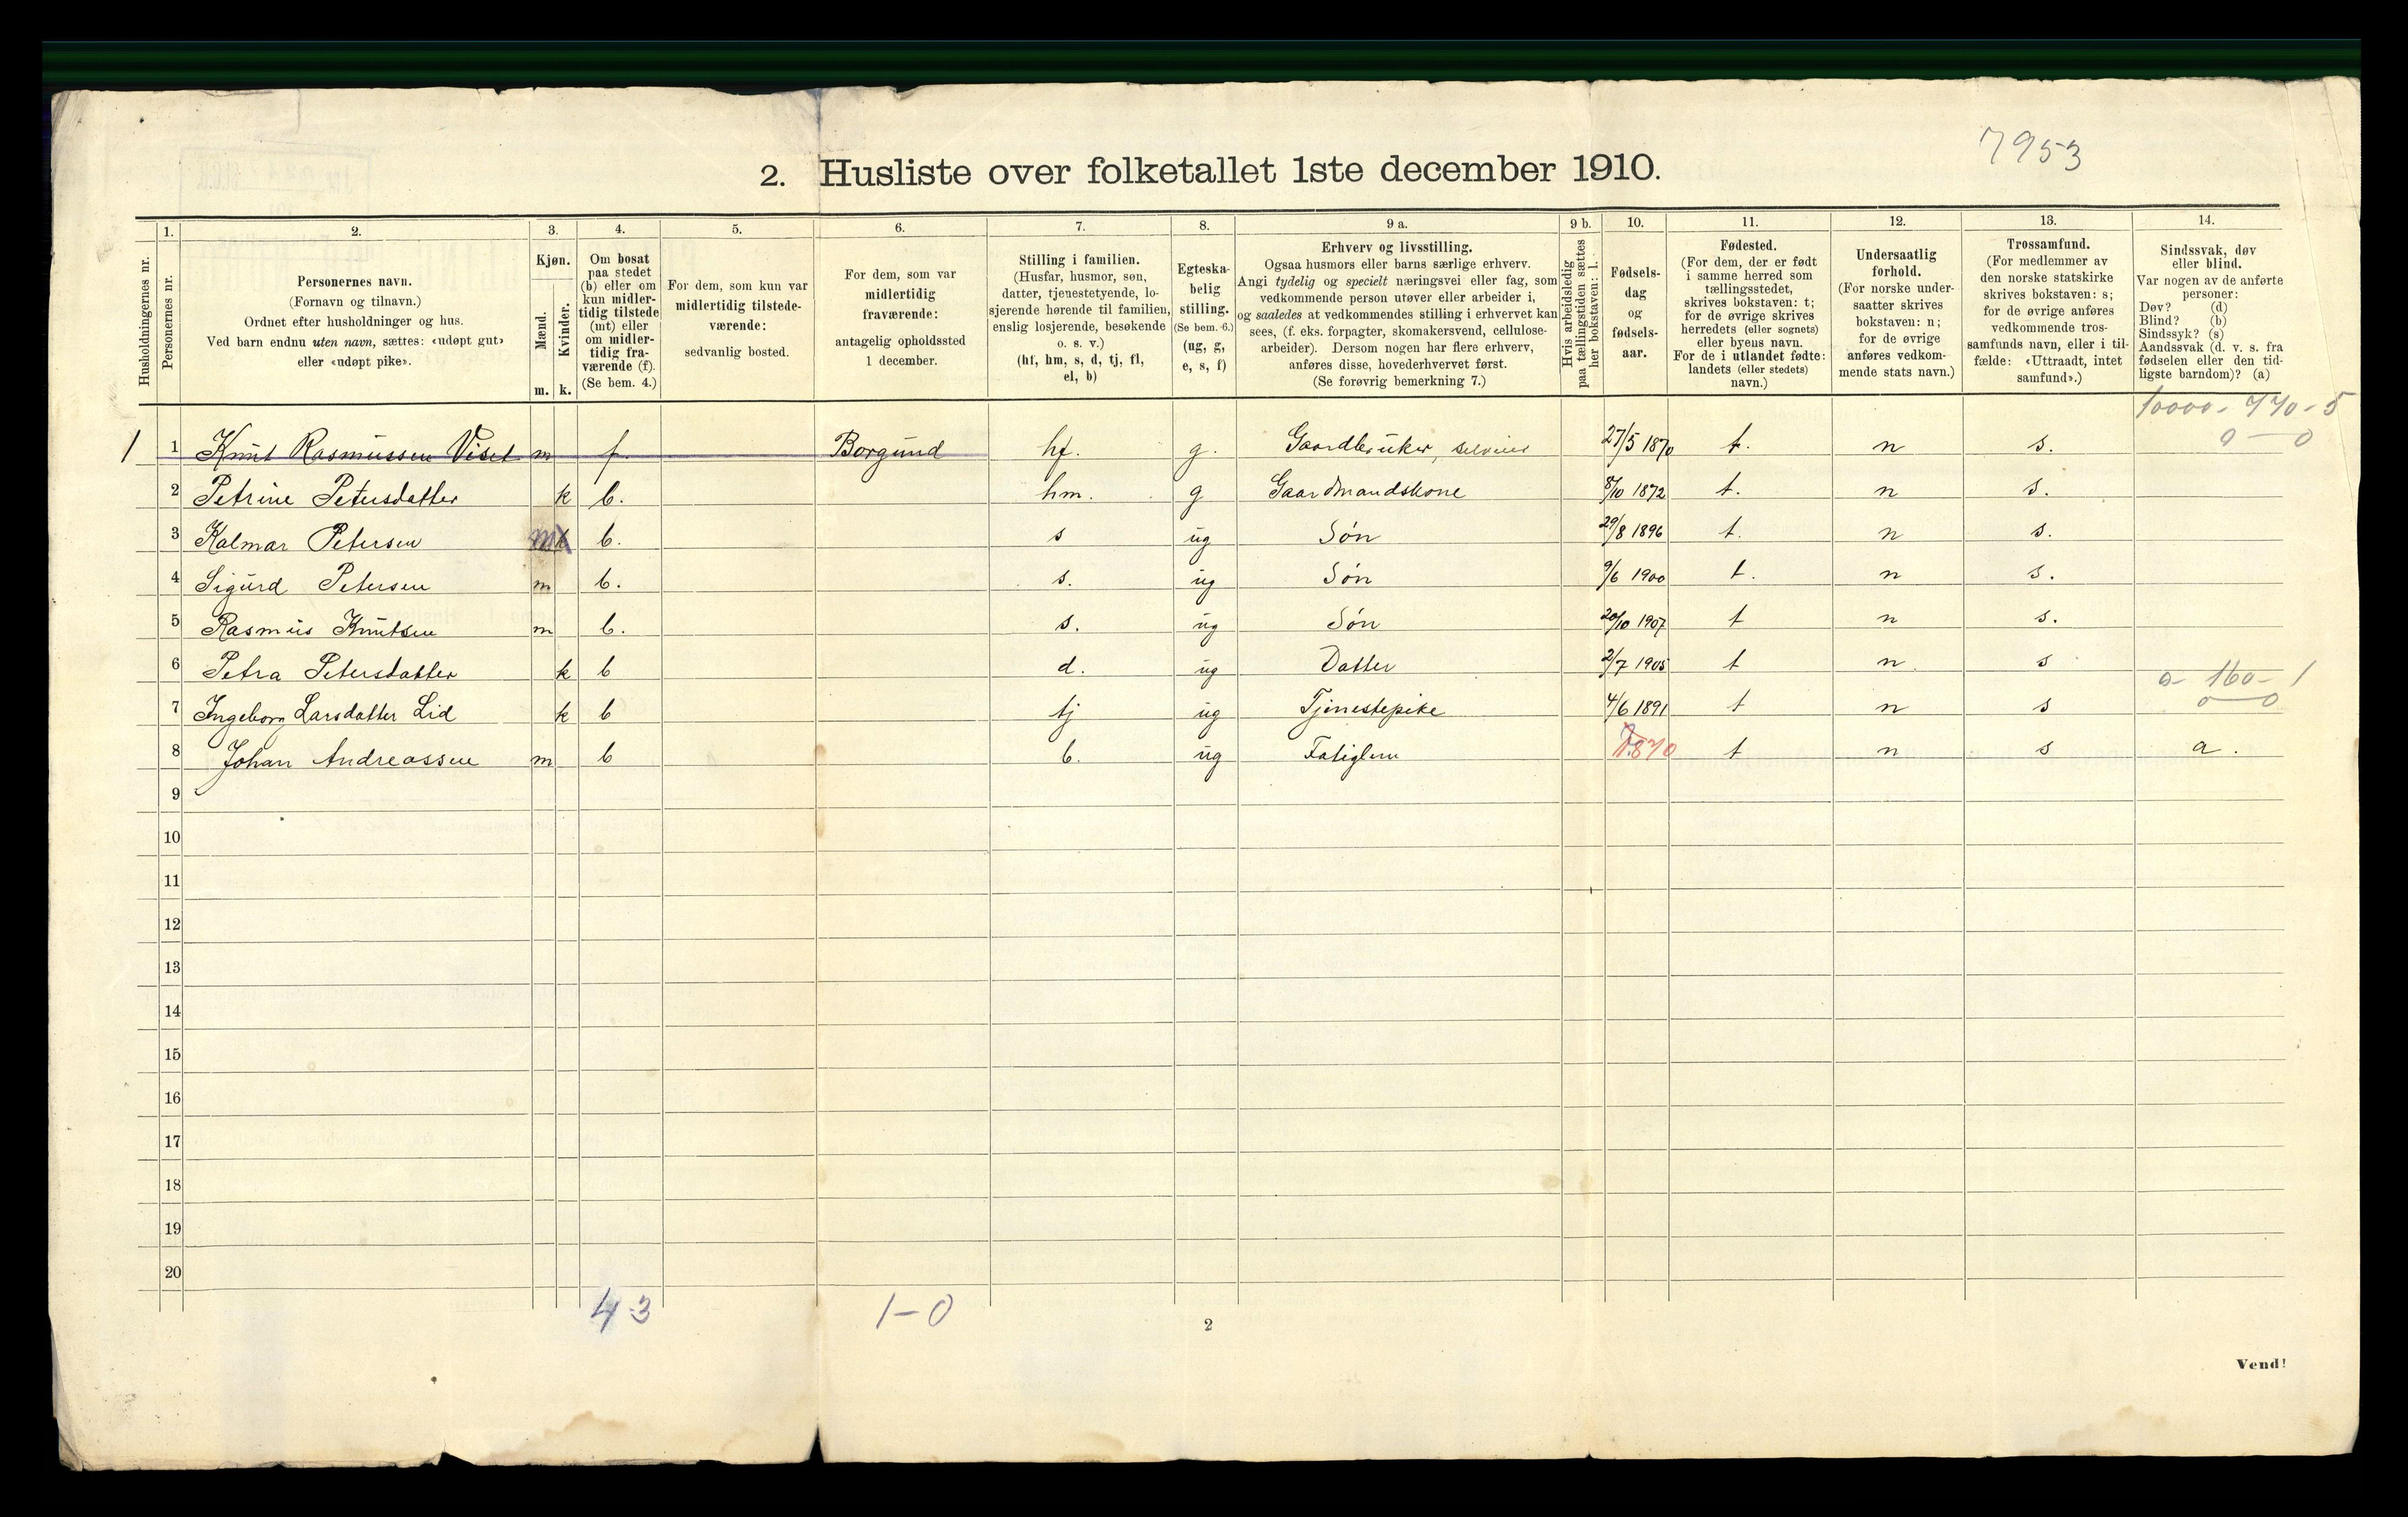 7953
2. Husliste over folketallet 1ste december 1910.
1. 2. 3. 4. 5. 6. 7. 8. 9 a. 9 b. 10. 11. 12. 13. 14.
Husholdningernes nr.
Personernes nr.
Personernes navn.
(Fornavn og tilnavn.)
Ordnet efter husholdninger og hus.
Ved barn endnu uten navn, sættes: «udøpt gut»
eller «udøpt pike».
Kjøn.
Mænd.
Kvinder.
m. k.
Om bosat
paa stedet
(b) eller om
kun midler-
tidig tilstede
(mt) eller
om midler-
tidig fra-
værende (f).
(Se bem. 4.)
For dem, som kun var
midlertidig tilstede-
værende:
sedvanlig bosted.
For dem, som var
midlertidig
fraværende:
antagelig opholdssted
1 december.
Stilling i familien.
(Husfar, husmor, søn,
datter, tjenestetyende, lo-
sjerende hørende til familien,
enslig losjerende, besøkende
o. s. v.)
(hf, hm, s, d, tj, fl,
el, b)
Egteska-
belig
stilling.
(Se bem. 6.)
(ug, g,
e, s, f)
Erhverv og livsstilling.
Ogsaa husmors eller barns særlige erhverv.
Angi tydelig og specielt næringsvei eller fag, som
vedkommende person utøver eller arbeider i,
og saaledes at vedkommendes stilling i erhvervet kan
sees, (f. eks. forpagter, skomakersvend, cellulose-
arbeider). Dersom nogen har flere erhverv,
anføres disse, hovederhvervet først.
(Se forøvrig bemerkning 7.)
Hvis arbeidsledig
paa tællingstiden sættes
her bokstaven: l.
Fødsels-
dag
og
fødsels-
aar.
Fødested.
(For dem, der er født
i samme herred som
tællingsstedet,
skrives bokstaven: t;
for de øvrige skrives
herredets (eller sognets)
eller byens navn.
For de i utlandet fødte:
landets (eller stedets)
navn.)
Undersaatlig
forhold.
(For norske under-
saatter skrives
bokstaven: n;
for de øvrige
anføres vedkom-
mende stats navn.)
Trossamfund.
(For medlemmer av
den norske statskirke
skrives bokstaven: s;
for de øvrige anføres
vedkommende tros-
samfunds navn, eller i til-
fælde: «Uttraadt, intet
samfund».)
Sindssvak, døv
eller blind.
Var nogen av de anførte
personer:
Døv? (d)
Blind? (b)
Sindssyk? (s)
Aandssvak (d. v. s. fra
fødselen eller den tid-
ligste barndom)? (a)
10000 - 770 - 5
0 — 0
1 1 Knut Rasmussen Viset m f Borgund hf. g. Gaardbruker, selveier 27/5 1870 t. n s.
2 Petrine Petersdatter k b. hm. g Gaardmandskone 8/10 1872 t. n s.
3 Kalmar Petersen m b. s ug Søn 29/8 1896 t. n s.
4 Sigurd Petersen m b. s. ug Søn 9/6 1900 t. n s.
5 Rasmus Knutsen m b. s. ug Søn 20/10 1907 t n s.
6 Petra Petersdatter k b d. ug Datter 2/7 1905 t n. s
0 - 160 - 1
0 — 0
7 Ingeborg Larsdatter Lid k b tj ug Tjenestepike 4/6 1891 t n s
8 Johan Andreassen m b b. ug 1870 t n s a.
9
10
11
12
13
14
15
16
17
18
19
20
4 3 1 - 0
2
Vend!